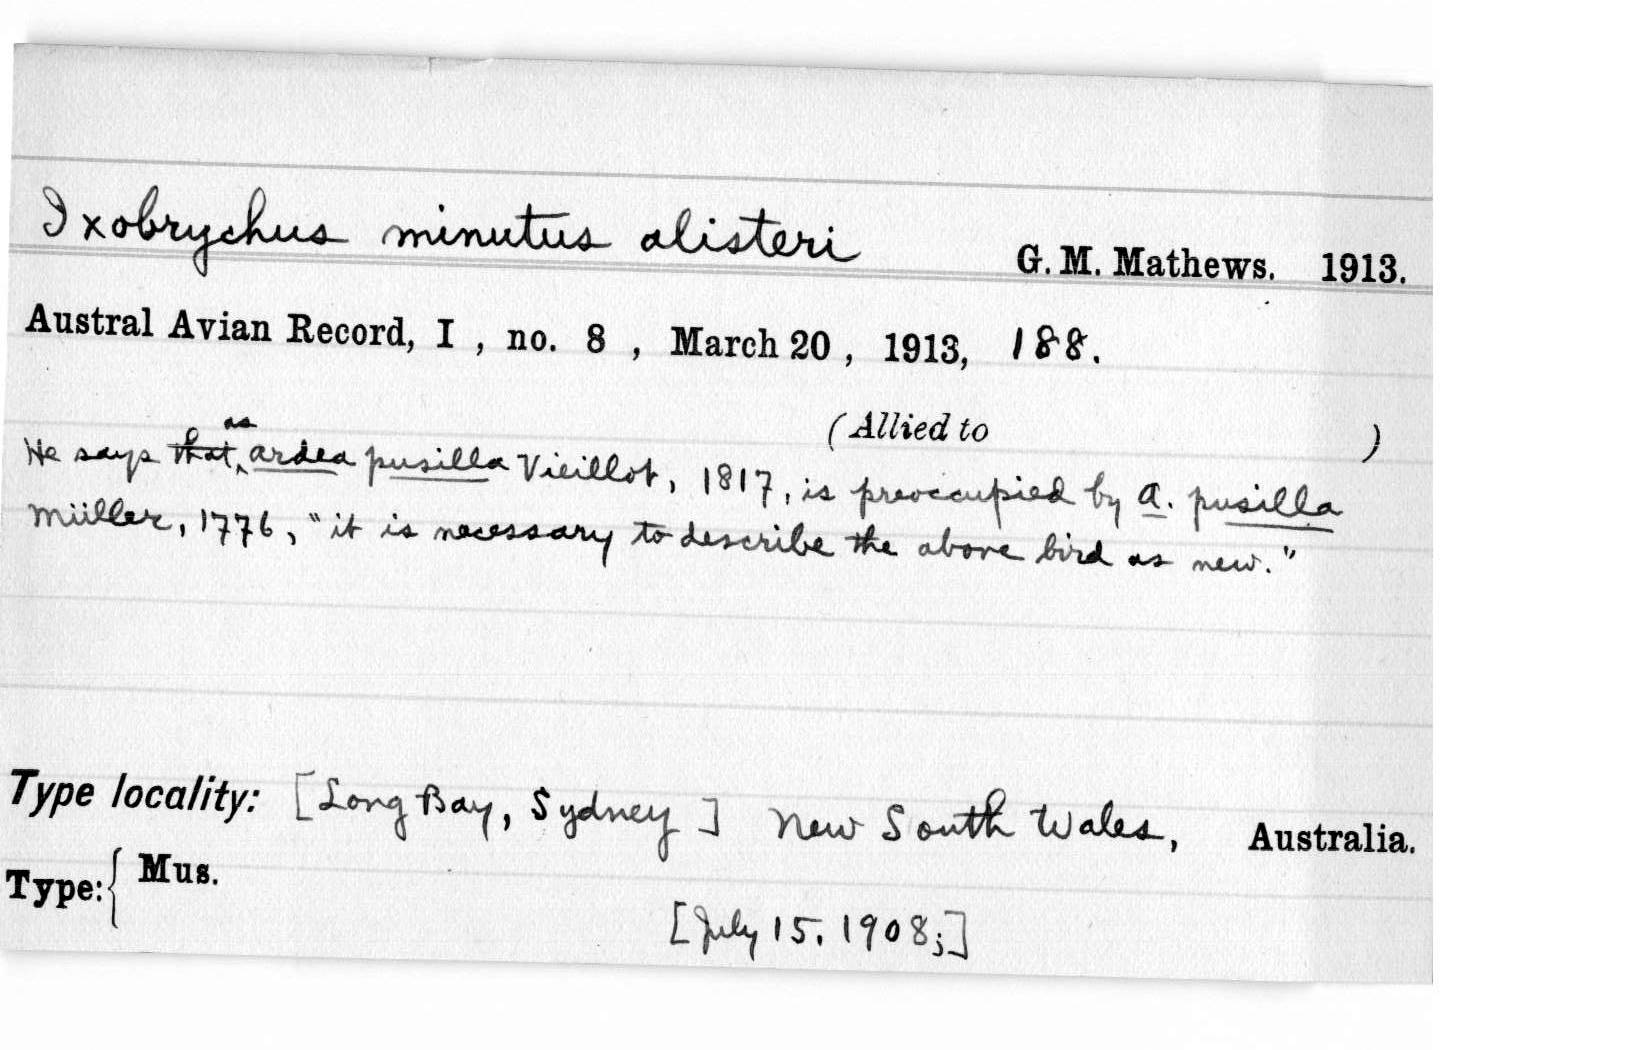 Ixobrychus minutus alisteri G. M. Mathews. 1913.
Austral Avian Record, I , no. 8 , March 20 , 1913, 188.
(Allied to )
He says that as ardea pusilla Vieillot, 1817, is preoccupied by a. pusilla
Müller, 1776, "it is necessary to describe the above bird as new."
Type locality: [Long Bay, Sydney] New South Wales, Australia.
Type: { Mus.
[July 15, 1908;]